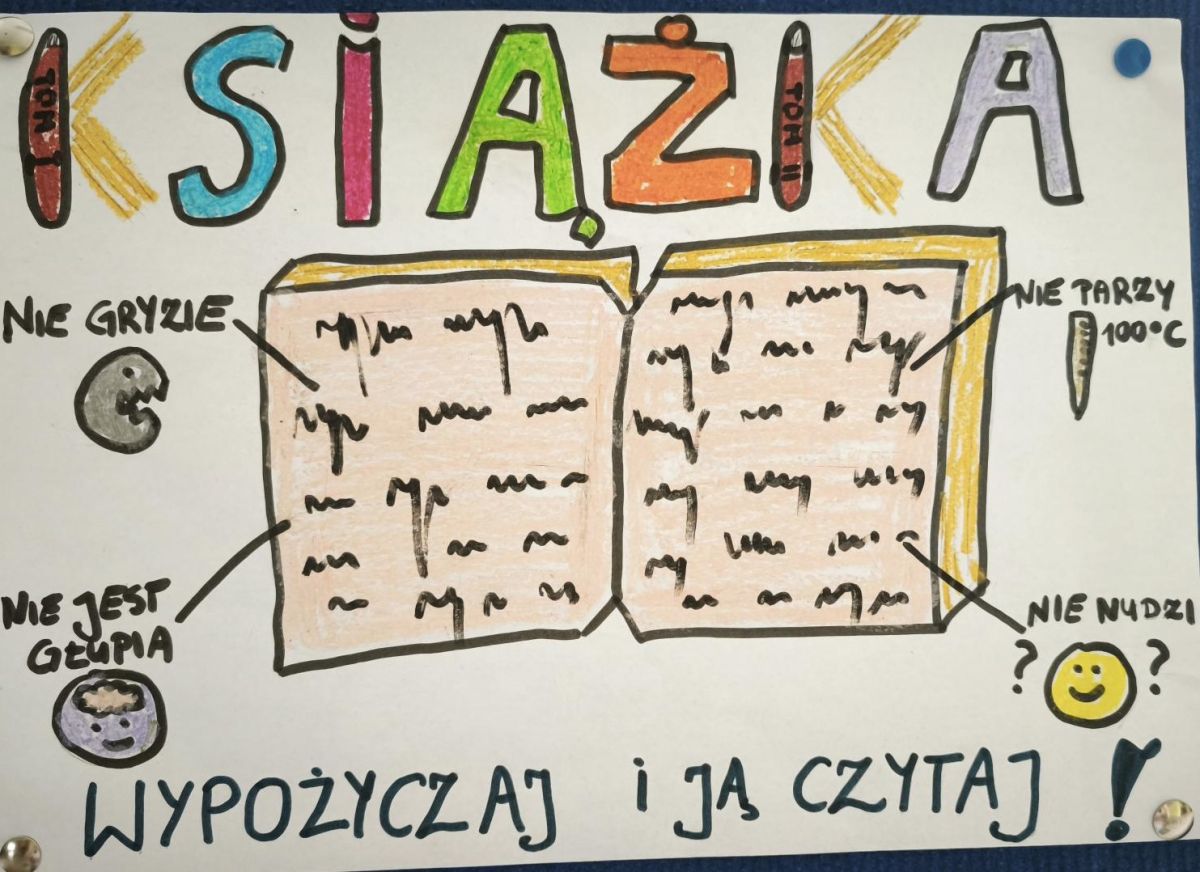 KSIĄŻKA
TOM I
TOM II
NIE GRYZIE
NIE PARZY
100°C
NIE JEST
GŁUPIA
NIE NUDZI
? ?
WYPOŻYCZAJ i JĄ CZYTAJ !